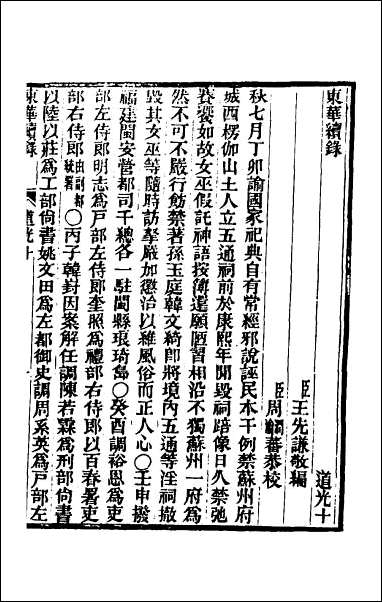 東華續錄
道光十
臣王先謙敬編
臣周蕃恭校
秋七月丁卯諭國家祀典自有常經邪說誣民本干例禁蘇州府
城西楞伽山土人立五通祠前於康熙年間毀祠踣像日久禁弛
賽饗如故女巫假託神語按簿還願陋習相沿不獨蘇州一府爲
然不可不嚴行飭禁著孫玉庭韓文綺卽將境內五通等淫祠撤
毀其女巫等隨時訪拏嚴加懲治以維風俗而正人心○壬申撥
福建閩安營都司千總各一駐閩縣琅琦島○癸酉調裕恩爲吏
部左侍郎明志爲戶部左侍郎奎照爲禮部右侍郎以百春署吏
部右侍郎由副都統署○丙子韓崶因案解任調陳若霖爲刑部尙書
以陸以莊爲工部尙書姚文田爲左都御史調周系英爲戶部左
東華續錄
道光十